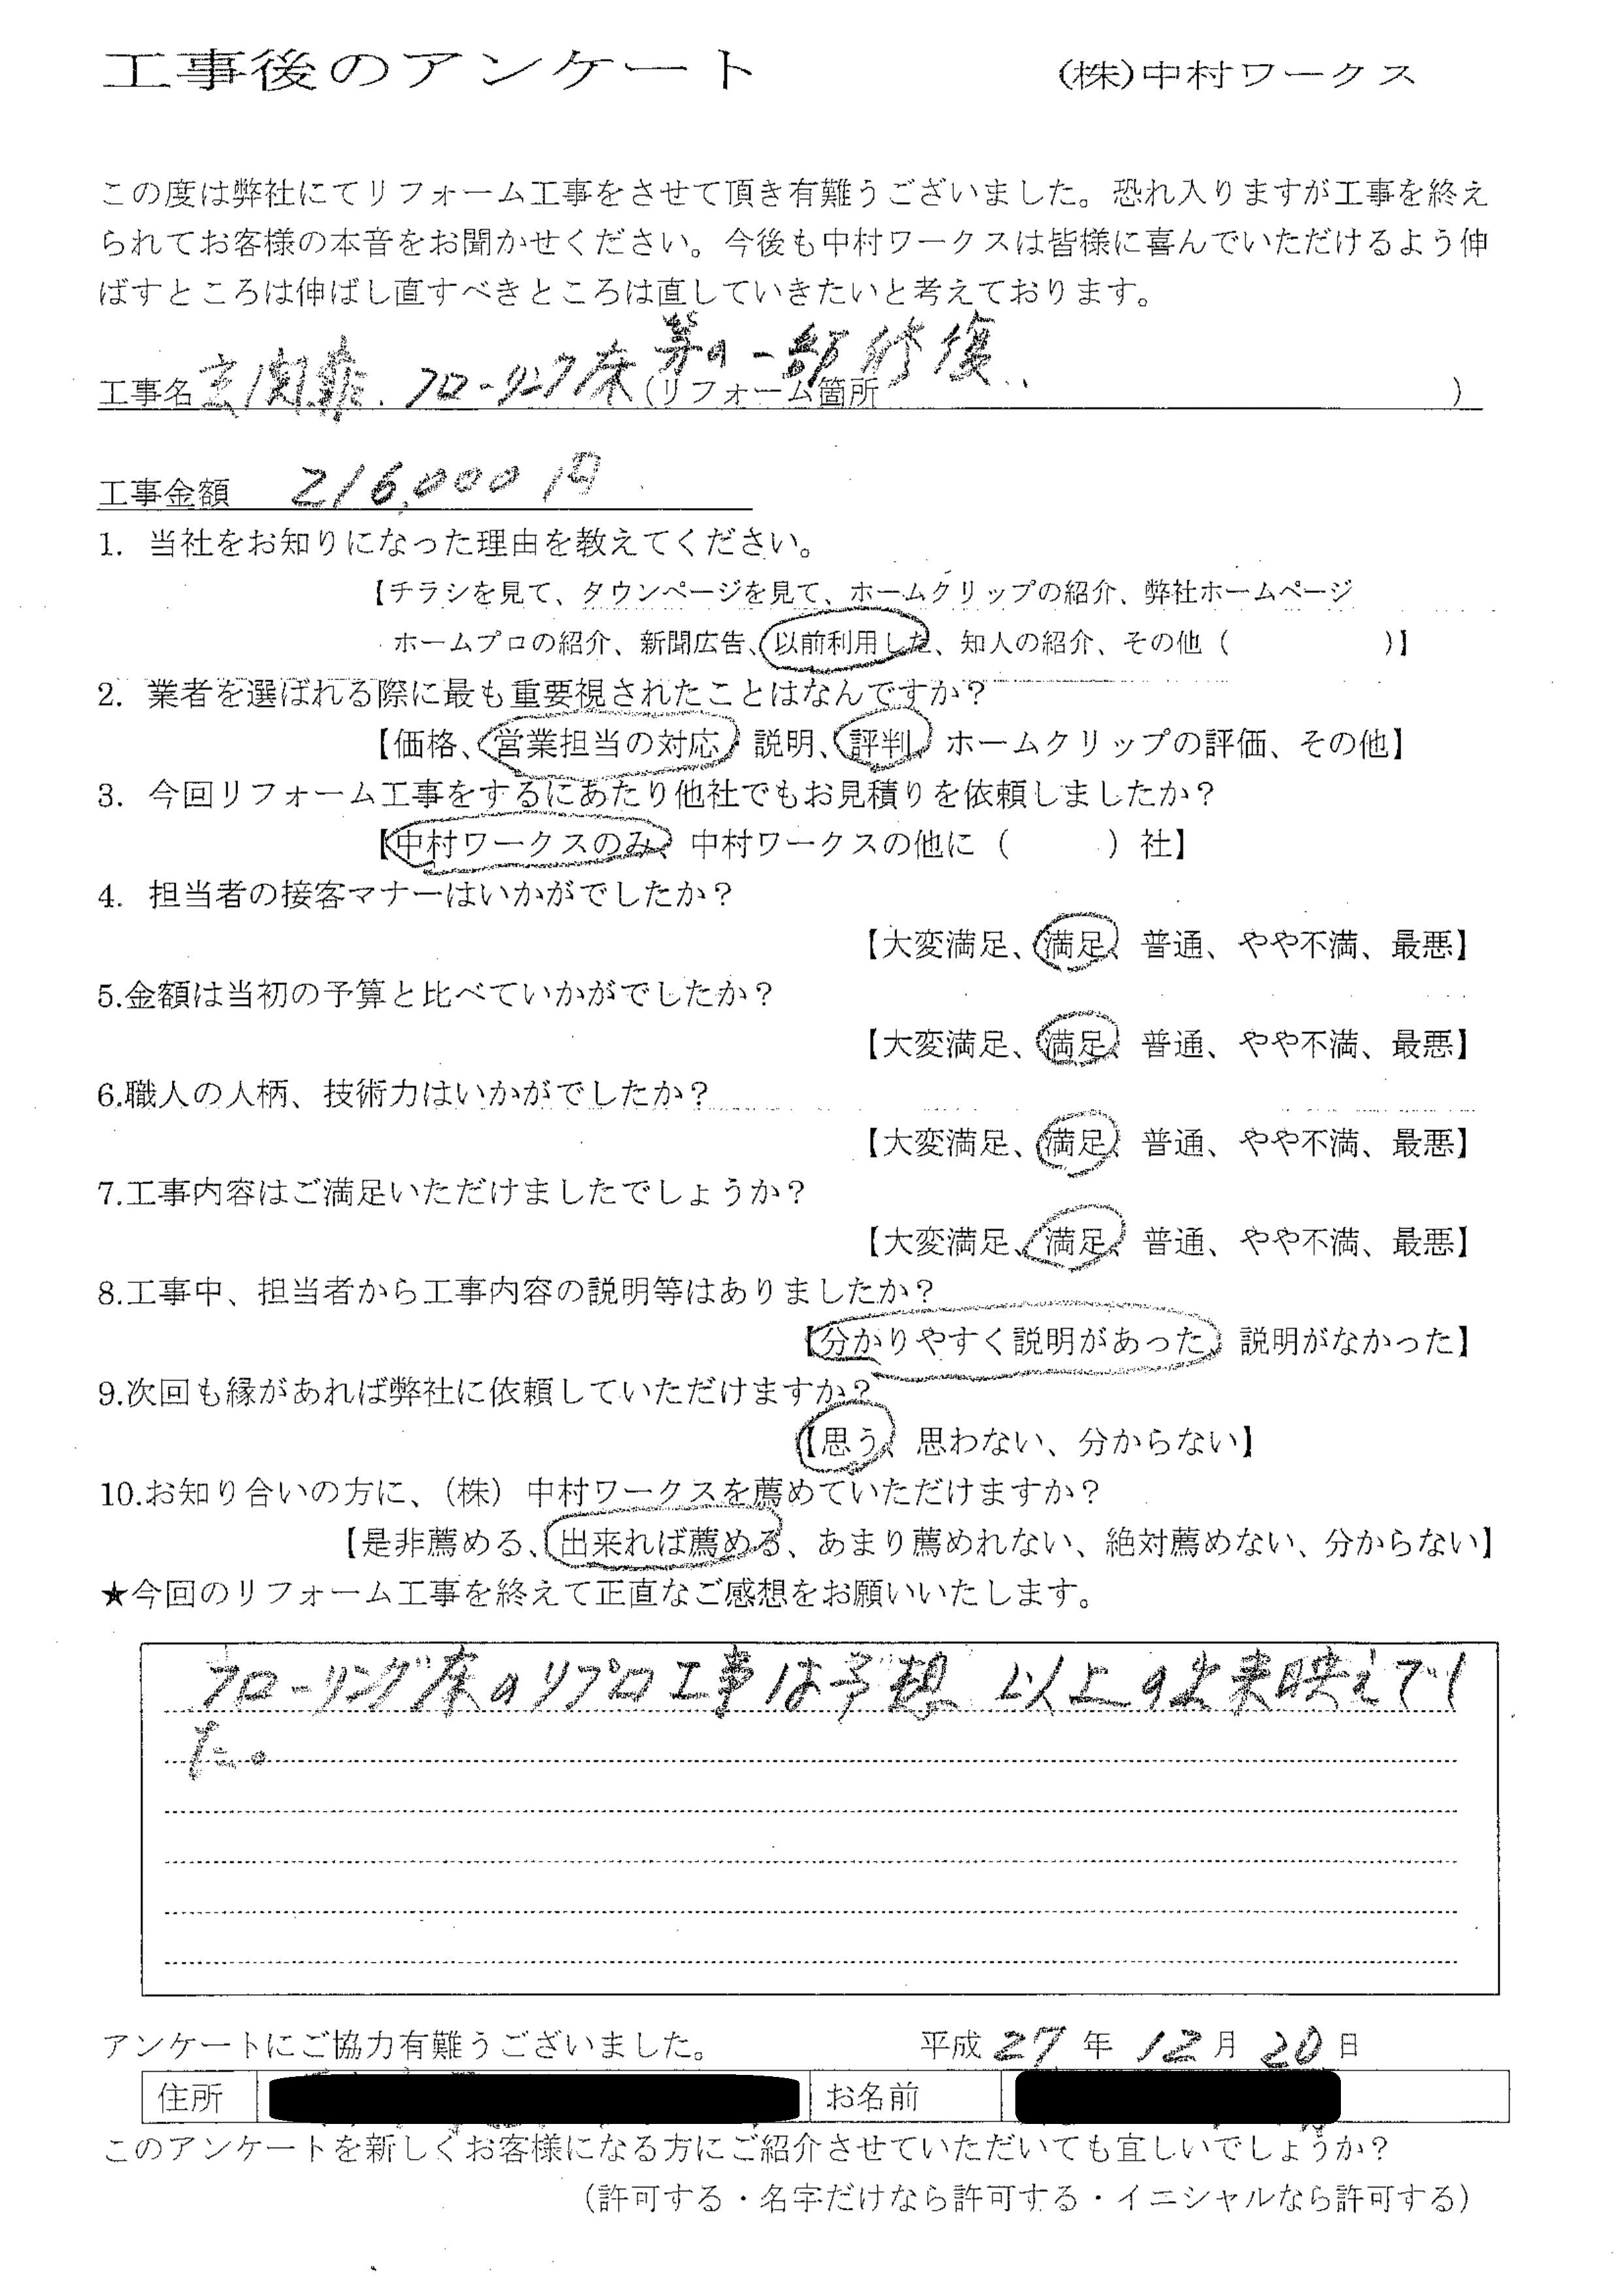 工事後のアンケート (株)中村ワークス
この度は弊社にてリフォーム工事をさせて頂き有難うございました。恐れ入りますが工事を終え
られてお客様の本音をお聞かせください。今後も中村ワークスは皆様に喜んでいただけるよう伸
ばすところは伸ばし直すべきところは直していきたいと考えております。
工事名 玄関 フローリング床等の一部修復 (リフォーム箇所 )
工事金額 216,000円
1. 当社をお知りになった理由を教えてください。
【チラシを見て、タウンページを見て、ホームクリップの紹介、弊社ホームページ
ホームプロの紹介、新聞広告、以前利用した、知人の紹介、その他（ ）】
2. 業者を選ばれる際に最も重要視されたことはなんですか？
【価格、営業担当の対応、説明、評判、ホームクリップの評価、その他】
3. 今回リフォーム工事をするにあたり他社でもお見積りを依頼しましたか？
【中村ワークスのみ、中村ワークスの他に（ ）社】
4. 担当者の接客マナーはいかがでしたか？
【大変満足、満足、普通、やや不満、最悪】
5.金額は当初の予算と比べていかがでしたか？
【大変満足、満足、普通、やや不満、最悪】
6.職人の人柄、技術力はいかがでしたか？
【大変満足、満足、普通、やや不満、最悪】
7.工事内容はご満足いただけましたでしょうか？
【大変満足、満足、普通、やや不満、最悪】
8.工事中、担当者から工事内容の説明等はありましたか？
【分かりやすく説明があった、説明がなかった】
9.次回も縁があれば弊社に依頼していただけますか？
【思う、思わない、分からない】
10.お知り合いの方に、（株）中村ワークスを薦めていただけますか？
【是非薦める、出来れば薦める、あまり薦めれない、絶対薦めない、分からない】
★今回のリフォーム工事を終えて正直なご感想をお願いいたします。
フローリング床のリプロ工事は予想以上の出来映えでし
た。
アンケートにご協力有難うございました。 平成27年12月20日
住所 お名前
このアンケートを新しくお客様になる方にご紹介させていただいても宜しいでしょうか？
（許可する・名字だけなら許可する・イニシャルなら許可する）